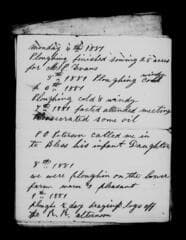 Monday 6th 1881
Ploughing finished sowing 25 acres
for Evans
5th 1881 Ploughing cold windy
6th 1881
Ploughing cold & windy
7th 1881 fasted attended meeting
consecrated some oil
P O Peterson called me in
to Bless his infant Daughter
8th 1881
we were ploughin on the lower
farm warm & pleasant
9th 1881
plugh & day draging logs off
the R. R. afternoon